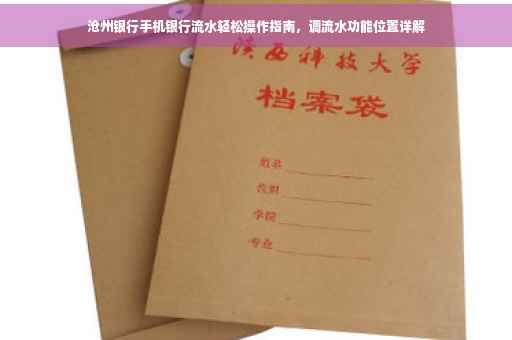 沧州银行手机银行流水轻松操作指南，调流水功能位置详解
陕西科技大学
档案袋
姓名
学院
专业